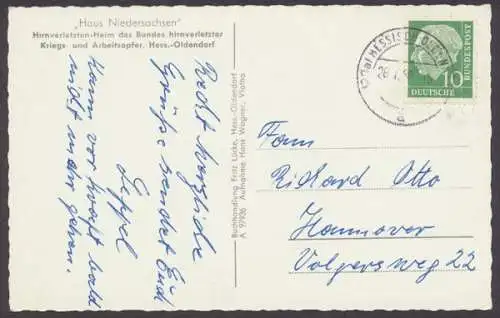 „Haus Niedersachsen"
Hirnverletzten-Heim des Bundes hirnverletzter
Kriegs- und Arbeitsopfer, Hess.-Oldendorf
Recht herzliche
Grüße sendet Euch
Seppel
Kann vor kraft bald
nicht mehr gehen.
Buchhandlung Fritz Lücke, Hess.-Oldendorf
A 97936 Aufnahme Hans Wagner, Vlotho
HESSISCH OLDENDORF
a
10
DEUTSCHE
BUNDESPOST
Fam
Richard Otto
Hannover
Volgersweg 22